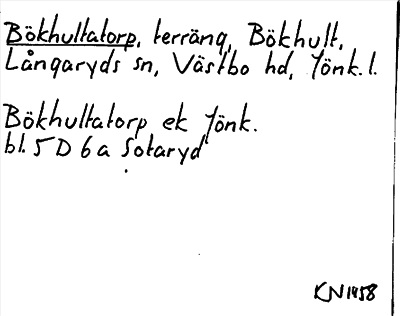 Bökhultatorp, terräng, Bökhult,
Långaryds sn, Västbo hd, Jönk. l.
Bökhultatorp ek Jönk.
bl. 5 D 6 a Sotaryd
KN 1958